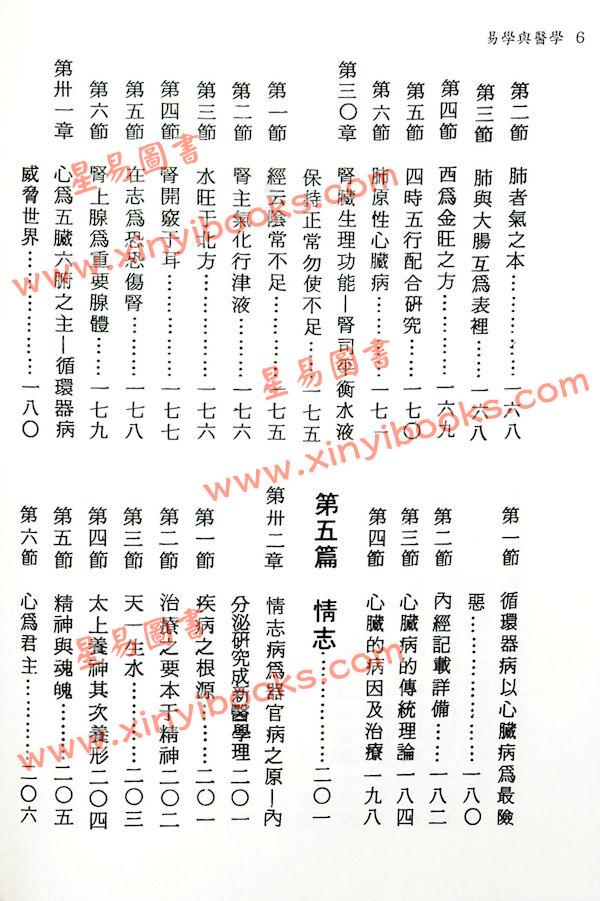 易學與醫學 6
第二節 肺者氣之本⋯⋯⋯⋯一六八
第三節 肺與大腸互爲表裡⋯⋯一六八
第四節 西爲金旺之方⋯⋯⋯一六九
第五節 四時五行配合研究⋯⋯一七〇
第六節 肺原性心臟病⋯⋯⋯一七一
第三〇章 腎臟生理功能—腎司平衡水液
保持正常勿使不足⋯⋯一七五
第一節 經云陰常不足⋯⋯⋯一七五
第二節 腎主氣化行津液⋯⋯⋯一七六
第三節 水旺于北方⋯⋯⋯⋯一七六
第四節 腎開竅于耳⋯⋯⋯⋯一七七
第五節 在志爲恐恐傷腎⋯⋯⋯一七八
第六節 腎上腺爲重要腺體⋯⋯一七九
第卅一章 心爲五臟六腑之主—循環器病
威脅世界⋯⋯⋯⋯⋯一八〇
第一節 循環器病以心臟病爲最險
惡⋯⋯⋯⋯⋯⋯一八〇
第二節 內經記載詳備⋯⋯⋯一八二
第三節 心臟病的傳統理論⋯⋯一八四
第四節 心臟的病因及治療一九八
第五篇 情志⋯⋯⋯⋯⋯二〇一
第卅二章 情志病爲器官病之原—內
分泌研究成新醫學理二〇一
第一節 疾病之根源⋯⋯⋯⋯二〇一
第二節 治療之要本于精神⋯⋯二〇二
第三節 天一生水⋯⋯⋯⋯⋯二〇三
第四節 太上養神其次養形二〇四
第五節 精神與魂魄⋯⋯⋯⋯二〇五
第六節 心爲君主⋯⋯⋯⋯⋯二〇六
星易圖書
www.xinyibooks.com
星易圖書
www.xinyibooks.com
星易圖書
www.xinyibooks.com